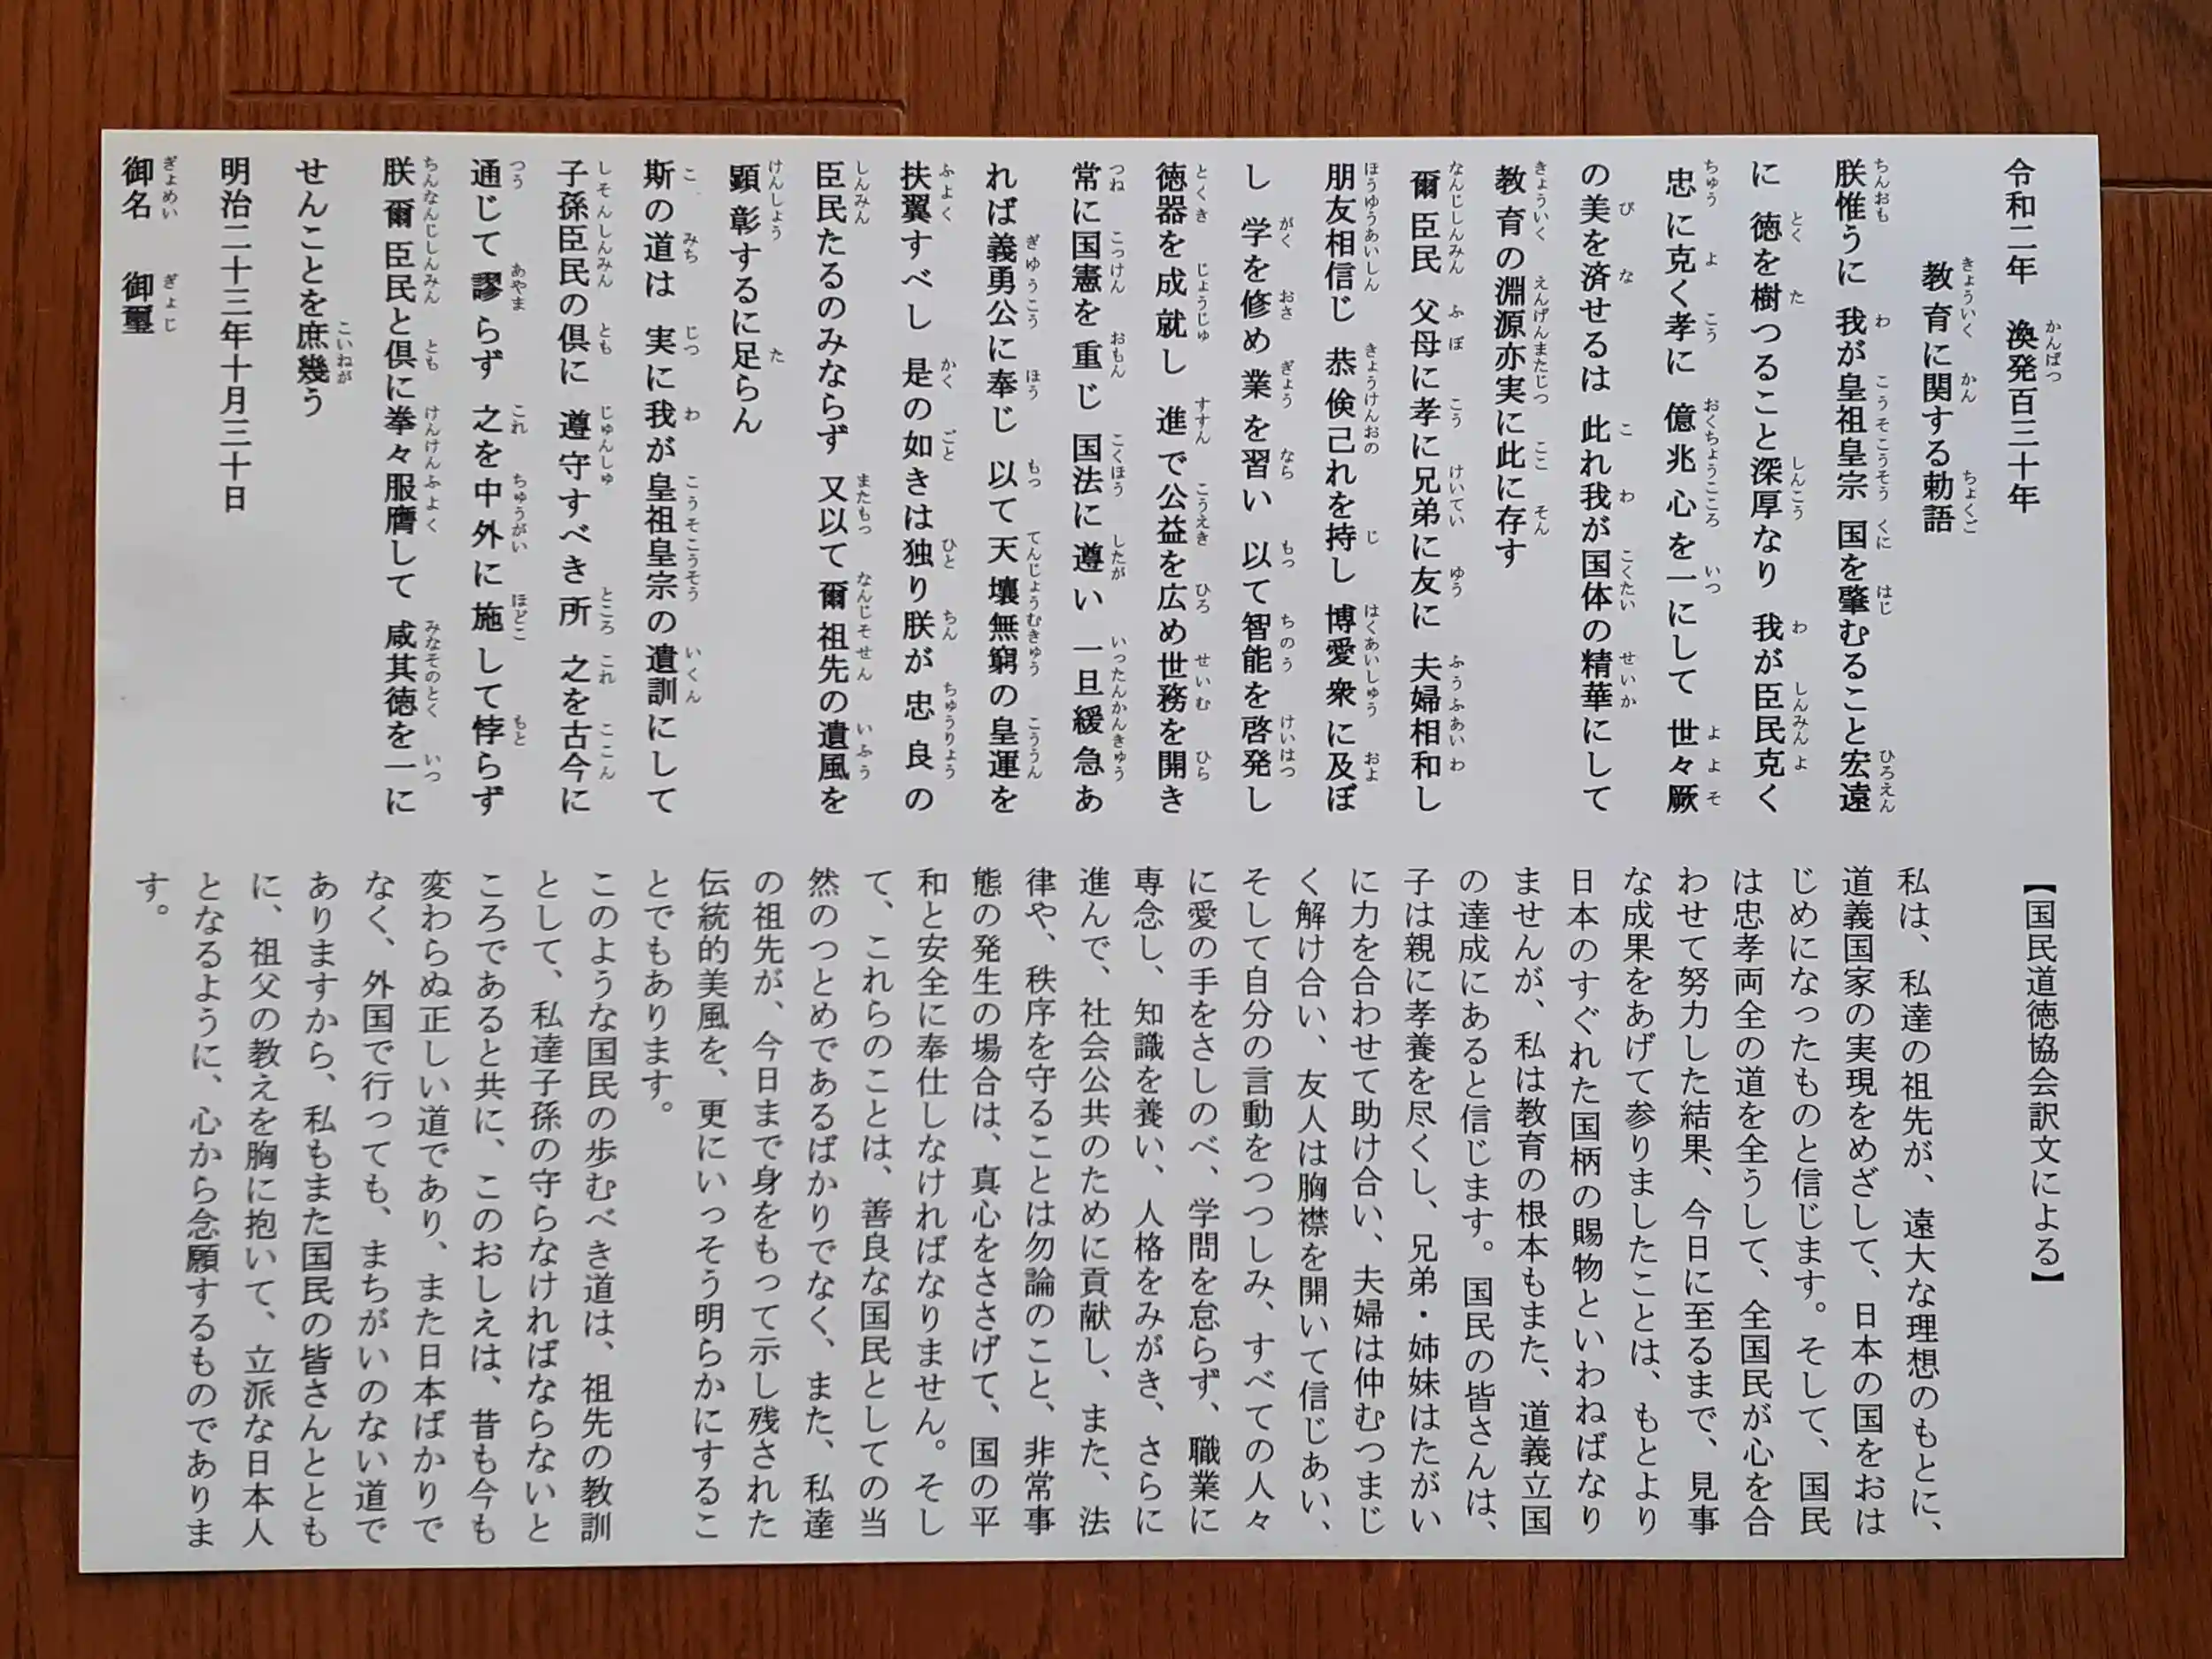 令和二年　渙発百三十年
教育に関する勅語
朕惟うに　我が皇祖皇宗　国を肇むること宏遠
に　徳を樹つること深厚なり　我が臣民克く
忠に克く孝に　億兆心を一にして　世々厥
の美を済せるは　此れ我が国体の精華にして
教育の淵源亦実に此に存す
爾臣民　父母に孝に兄弟に友に　夫婦相和し
朋友相信じ　恭倹己れを持し　博愛衆に及ぼ
し　学を修め業を習い　以て智能を啓発し
徳器を成就し　進で公益を広め世務を開き
常に国憲を重じ　国法に遵い　一旦緩急あ
れば義勇公に奉じ　以て天壌無窮の皇運を
扶翼すべし　是の如きは独り朕が忠良の
臣民たるのみならず　又以て爾祖先の遺風を
顕彰するに足らん
斯の道は　実に我が皇祖皇宗の遺訓にして
子孫臣民の倶に　遵守すべき所　之を古今に
通じて謬らず　之を中外に施して悖らず
朕爾臣民と倶に拳々服膺して　咸其徳を一に
せんことを庶幾う
明治二十三年十月三十日
御名　御璽
【国民道徳協会訳文による】
私は、私達の祖先が、遠大な理想のもとに、
道義国家の実現をめざして、日本の国をおは
じめになったものと信じます。そして、国民
は忠孝両全の道を全うして、全国民が心を合
わせて努力した結果、今日に至るまで、見事
な成果をあげて参りましたことは、もとより
日本のすぐれた国柄の賜物といわねばなり
ませんが、私は教育の根本もまた、道義立国
の達成にあると信じます。国民の皆さんは、
子は親に孝養を尽くし、兄弟・姉妹はたがい
に力を合わせて助け合い、夫婦は仲むつまじ
く解け合い、友人は胸襟を開いて信じあい、
そして自分の言動をつつしみ、すべての人々
に愛の手をさしのべ、学問を怠らず、職業に
専念し、知識を養い、人格をみがき、さらに
進んで、社会公共のために貢献し、また、法
律や、秩序を守ることは勿論のこと、非常事
態の発生の場合は、真心をささげて、国の平
和と安全に奉仕しなければなりません。そし
て、これらのことは、善良な国民としての当
然のつとめであるばかりでなく、また、私達
の祖先が、今日まで身をもって示し残された
伝統的美風を、更にいっそう明らかにするこ
とでもあります。
このような国民の歩むべき道は、祖先の教訓
として、私達子孫の守らなければならないと
ころであると共に、このおしえは、昔も今も
変わらぬ正しい道であり、また日本ばかりで
なく、外国で行っても、まちがいのない道で
ありますから、私もまた国民の皆さんととも
に、祖父の教えを胸に抱いて、立派な日本人
となるように、心から念願するものでありま
す。